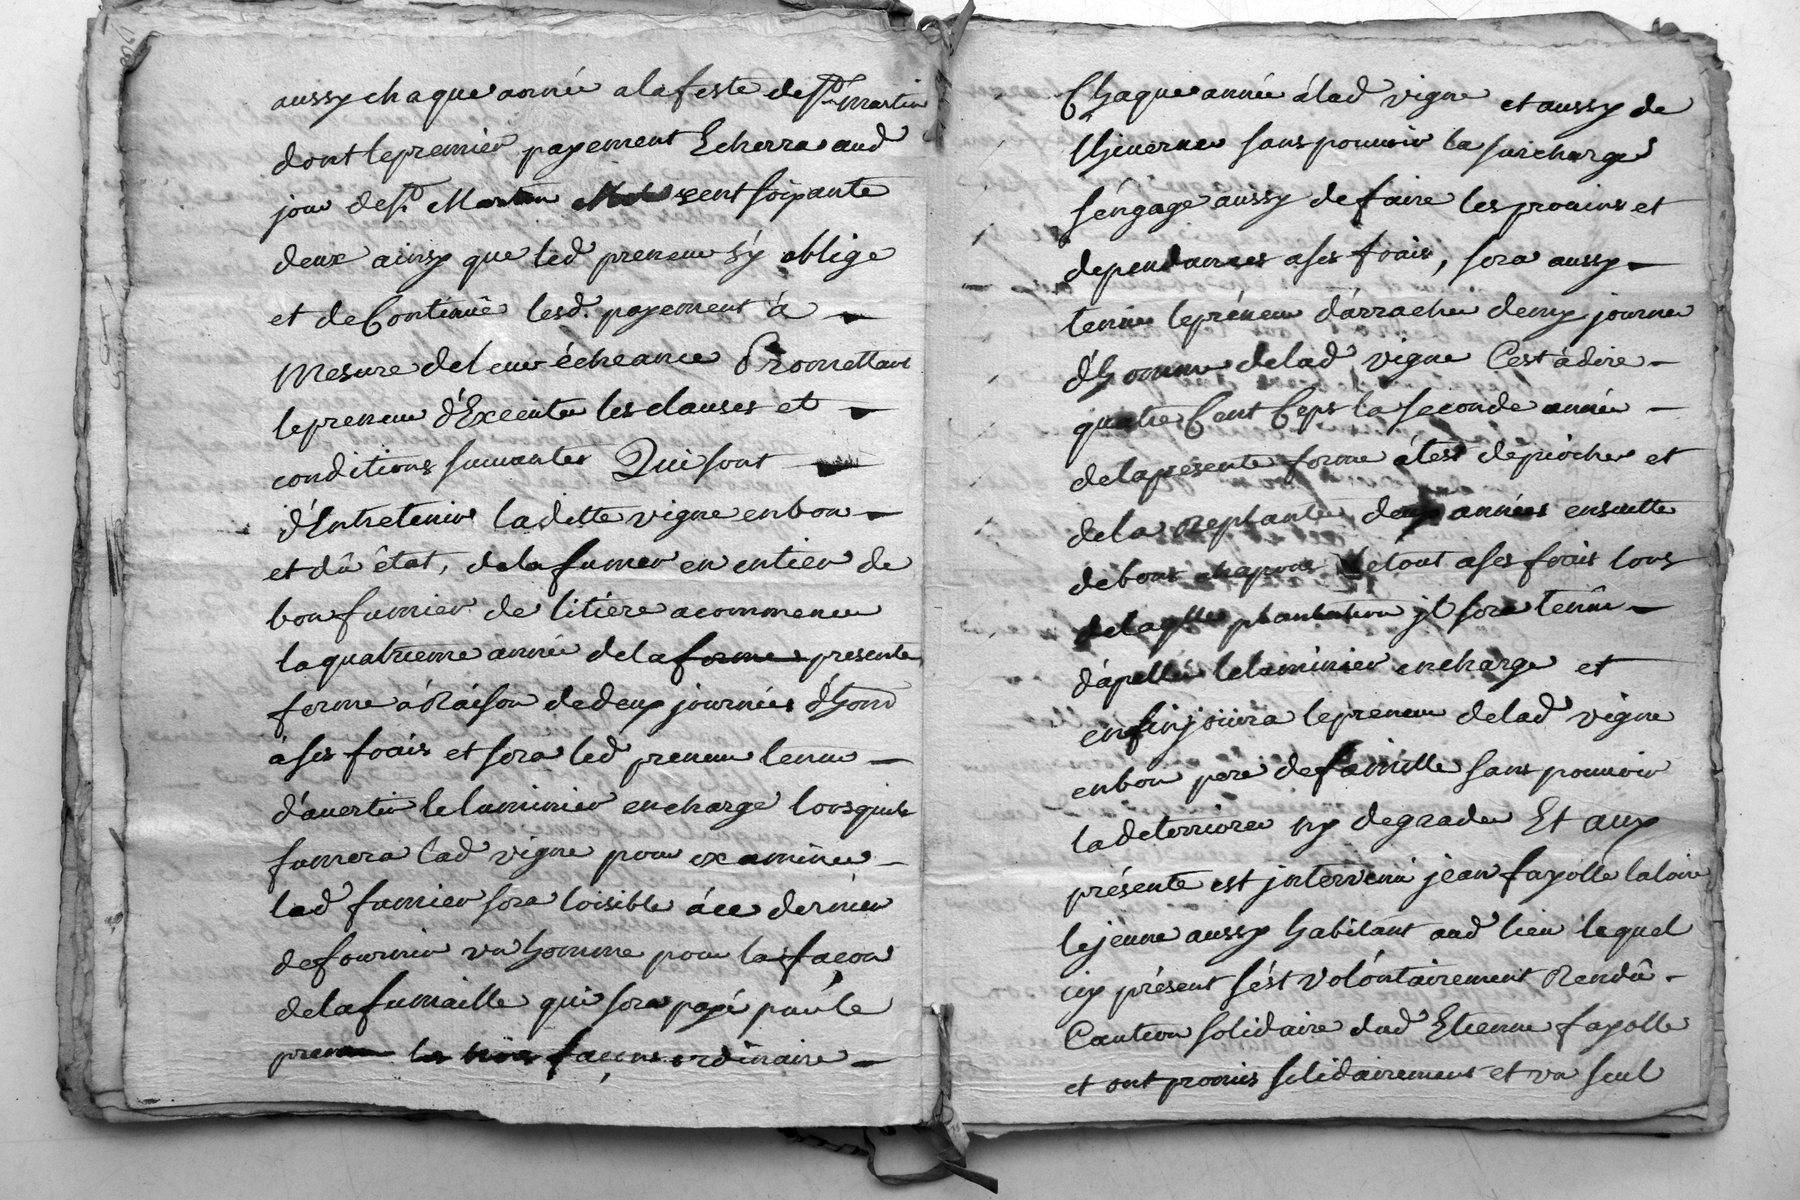 aussy chaque année a la feste de St. martin
dont le premier payement Echerra aud
jour de St. Martin cent soixante
deux ainsy que led preneur s'y oblige
et de Continuë lesd. payement à
mesure de leur échéance Promettant
le preneur d'Executer les clauses et
conditions suivantes Qui sont
d'Entretenir laditte vigne en bon
et dû état, de la fumer en entier de
bon fumier de litière a commencer
la quatrieme année de la forme presente
ferme à Raison de deux journées d'hom
à ses frais et sera led preneur tenu
d'avertir le luminier en charge lorsquil
fumera lad vigne pour examiner
led fumier sera loisible à ce dernier
de fournir un homme pour la façon
de la fumaille qui sera payé par le
preneur les trois façons ordinaire
Chaque année à lad vigne et aussy de
Lhiverner sans pouvoir la surcharger
s'engage aussy de faire les provins et
dependances a ses frais, sera aussy
tenu le préneur d'arracher demy journée
d'homme de lad vigne C'est à dire
quatre Cent Ceps la seconde année
de la présente ferme à test de piocher et
de la replanter deux années ensuitte
de bons chapons le tout a ses frais lors
de laqlle plantation jl sera tenû
d'apeller le luminier en charge et
enfin jouira le preneur de lad vigne
en bon pere de famille sans pouvoir
la deterriorer ny degrader Et aux
présente est jntervenu jean fayolle laloire
le jeune aussy habitant aud lieu lequel
icy présent s'est volontairement Rendû
Caution solidaire dud Etienne fayolle
et ont promis solidairement et un seul